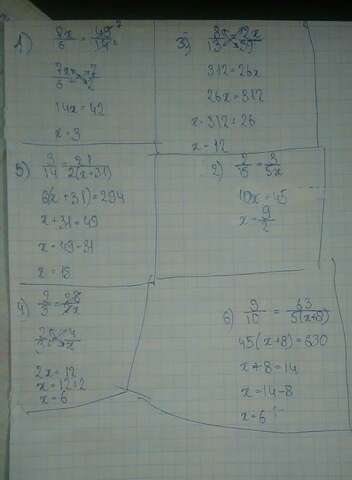 1)
14x = 42
x = 3
3)
312 = 26x
26x = 312
x = 312 : 26
x = 12
5) 3/14 = 21/2(x+31)
6(x + 31) = 294
x + 31 = 49
x = 49 - 31
x = 18
2) 2/15 = 3/5x
10x = 45
x = 9/2
4) 2/3 = 28/2x
2x = 12
x = 12:2
x = 6
6) 9/10 = 63/5(x+8)
45(x+8) = 630
x + 8 = 14
x = 14 - 8
x = 6